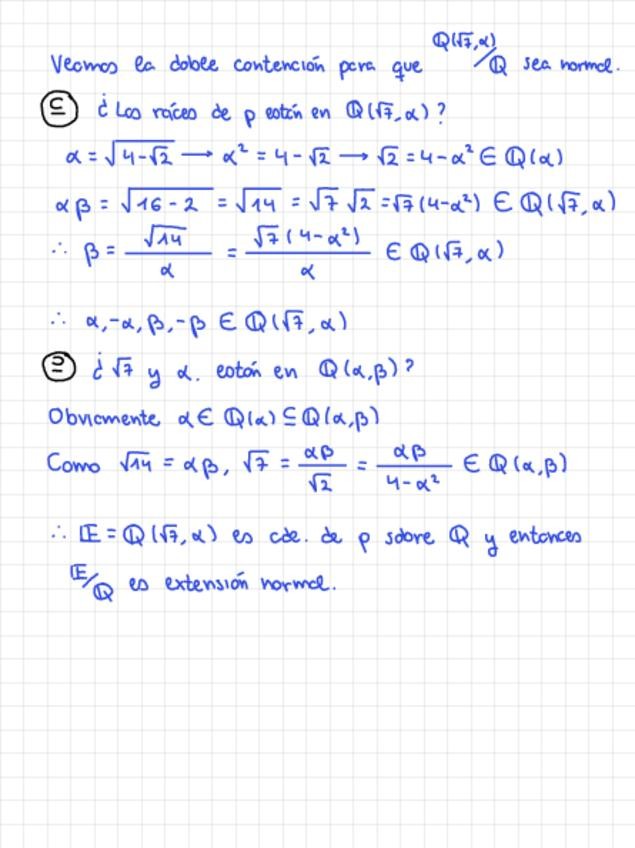 Veamos la doble contención para que Q(√7,α)/Q sea normal.
⊆ ¿Las raíces de p están en Q(√7,α)?
α = √(4-√2) → α² = 4-√2 → √2 = 4-α² ∈ Q(α)
αβ = √(16-2) = √14 = √7 √2 = √7(4-α²) ∈ Q(√7,α)
∴ β = √14/α = √7(4-α²)/α ∈ Q(√7,α)
∴ α,-α,β,-β ∈ Q(√7,α)
⊇ ¿√7 y α. están en Q(α,β)?
Obviamente α ∈ Q(α) ⊆ Q(α,β)
Como √14 = αβ, √7 = αβ/√2 = αβ/(4-α²) ∈ Q(α,β)
∴ E = Q(√7,α) es cde. de p sobre Q y entonces
E/Q es extensión normal.